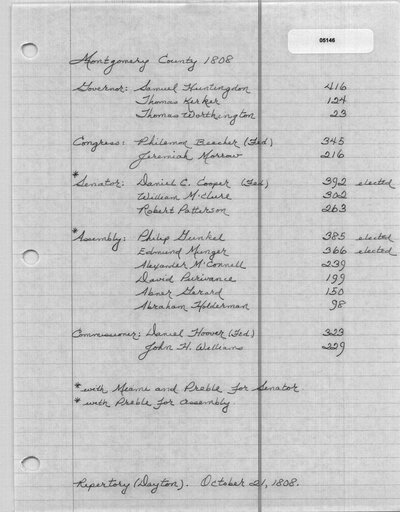 05146
Montgomery County 1808
Governor: Samuel Huntingdon 416
Thomas Kerker 124
Thomas Worthington 23
Congress: Philemon Beecher (Fed.) 345
Jeremiah Morrow 216
*Senator: Daniel C. Cooper (Fed) 392 elected
William McClure 302
Robert Patterson 263
*Assembly: Philip Gunkel 385 elected
Edmund Munger 366 elected
Alexander McConnell 239
David Purivance 199
Abner Gerard 150
Abraham Holderman 98
Commissioner: Daniel Hoover (Fed) 323
John H. Williams 229
* with Miami and Preble for Senator
* with Preble for Assembly
Repertory (Dayton). October 21, 1808.